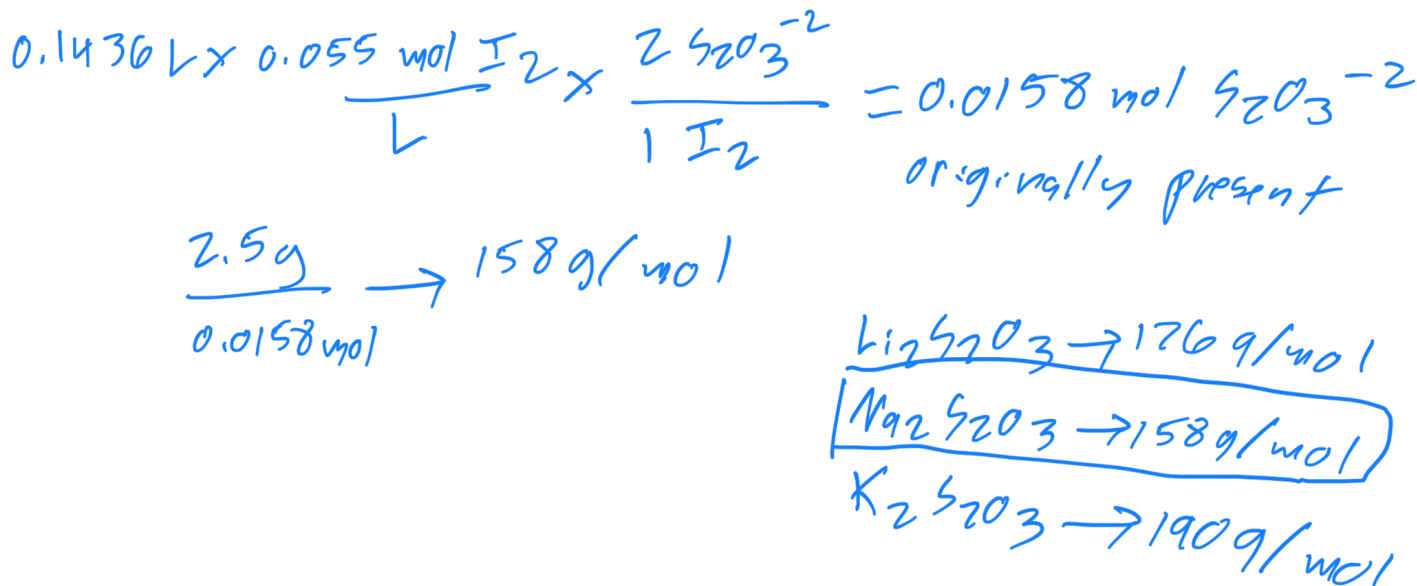 0.1436 L × 0.055 mol I₂ / L × 2 S₂O₃⁻² / 1 I₂ = 0.0158 mol S₂O₃⁻²
originally present
2.5g / 0.0158 mol → 158 g/mol
Li₂S₂O₃ → 126 g/mol
Na₂S₂O₃ → 158 g/mol
K₂S₂O₃ → 190 g/mol